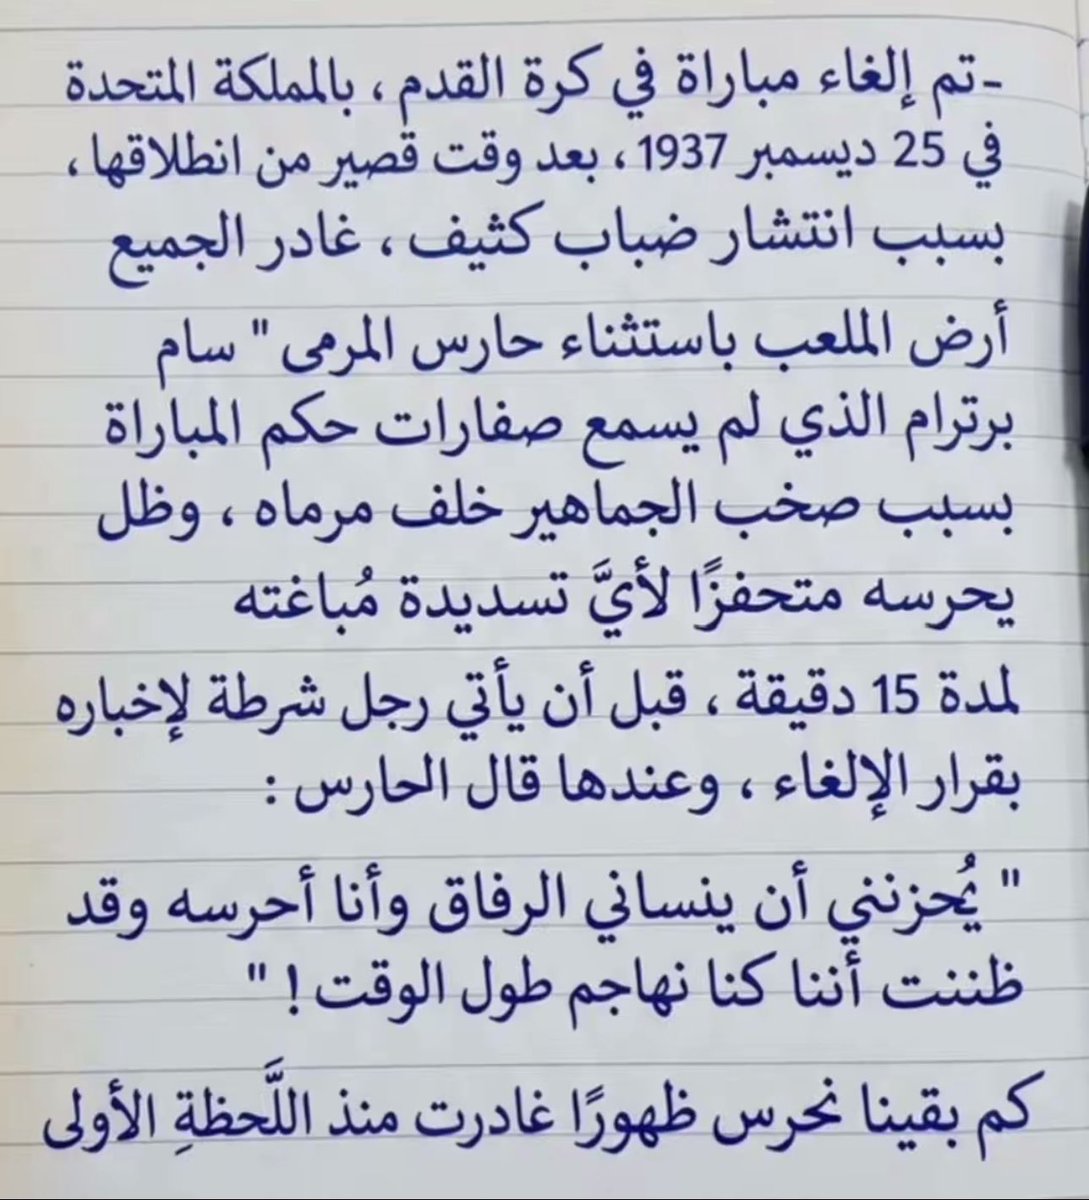 -تم إلغاء مباراة في كرة القدم ، بالمملكة المتحدة
في 25 ديسمبر 1937 ، بعد وقت قصير من انطلاقها ،
بسبب انتشار ضباب كثيف ، غادر الجميع
أرض الملعب باستثناء حارس المرمى " سام
برترام الذي لم يسمع صفارات حكم المباراة
بسبب صخب الجماهير خلف مرماه ، وظل
يحرسه متحفزًا لأيَّ تسديدة مُباغته
لمدة 15 دقيقة ، قبل أن يأتي رجل شرطة لإخباره
بقرار الإلغاء ، وعندها قال الحارس :
" يُحزنني أن ينساني الرفاق وأنا أحرسه وقد
ظننت أننا كنا نهاجم طول الوقت ! "
كم بقينا نحرس ظهورًا غادرت منذ اللَّحظةِ الأولى